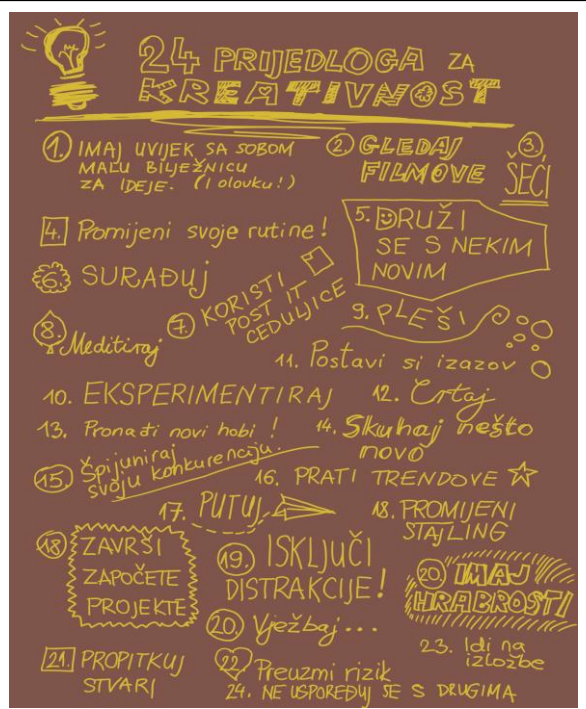 24 PRIJEDLOGA ZA
KREATIVNOST
1. IMAJ UVIJEK SA SOBOM
MALU BILJEŽNICU
ZA IDEJE. (I olovku!)
2. GLEDAJ
FILMOVE
3.
ŠEĆI
4. Promijeni svoje rutine!
5. DRUŽI
SE S NEKIM
NOVIM
6. SURAĐUJ
7. KORISTI
POST IT
CEDULJICE
8. Meditiraj
9. PLEŠI
11. Postavi si izazov
10. EKSPERIMENTIRAJ
12. Crtaj
13. Pronađi novi hobi!
14. Skuhaj nešto
novo
15. Špijuniraj
svoju konkurenciju.
16. PRATI TRENDOVE
17. PUTUJ
18. PROMIJENI
STAJLING
18. ZAVRŠI
ZAPOČETE
PROJEKTE
19. ISKLJUČI
DISTRAKCIJE!
20. IMAJ
HRABROSTI
20. Vježbaj...
21. PROPITKUJ
STVARI
22. Preuzmi rizik
23. Idi na
izložbe
24. NE USPOREĐUJ SE S DRUGIMA